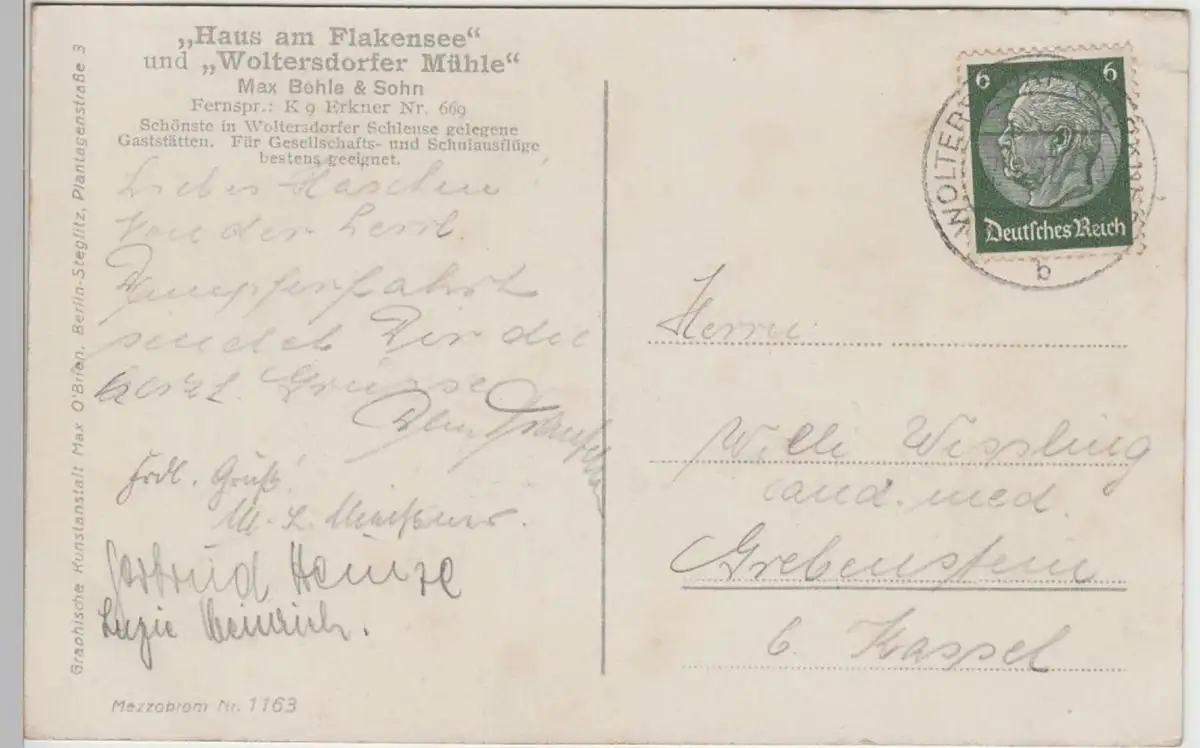 „Haus am Flakensee“
und „Woltersdorfer Mühle“
Max Behle & Sohn
Fernspr.: K 9 Erkner Nr. 669
Schönste in Woltersdorfer Schleuse gelegene
Gaststätten. Für Gesellschafts- und Schulausflüge
bestens geeignet.
Liebes Haschen!
Von der herrl.
Dampferfahrt
sendet Dir die
herzl. Grüsse
Frdl. Gruß!
M. L.
Gertrud Heinze
Luzie Heinrich.
Graphische Kunstanstalt Max O'Brien, Berlin-Steglitz, Plantagenstraße 3
Mezzobrom Nr. 1163
6 6
Deutsches Reich
b
Herrn
Willi Wissling
cand. med.
Grebenstein
b. Kassel